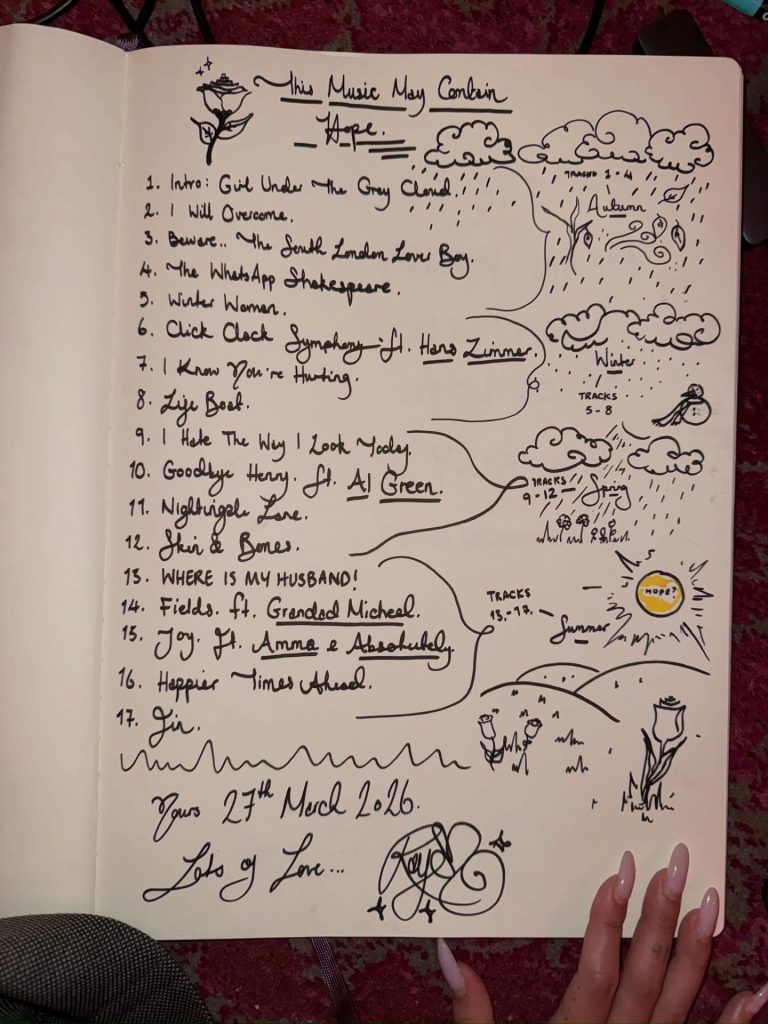 This Music May Contain
Hope.
1. Intro: Girl Under The Grey Cloud.
2. I Will Overcome.
3. Beware.. The South London Lover Boy.
4. The WhatsApp Shakespeare.
5. Winter Woman.
6. Click Clack Symphony ft. Hans Zimmer.
7. I Know You're Hurting.
8. Life Boat.
9. I Hate The Way I Look Today.
10. Goodbye Henry. ft. Al Green.
11. Nightingale Lane.
12. Skin & Bones.
13. WHERE IS MY HUSBAND!
14. Fields. ft. Grandad Micheal.
15. Joy. ft. Amma e Absolutely.
16. Happier Times Ahead.
17. Fin.
TRACKS 1-4
Autumn
Winter
TRACKS
5-8
TRACKS
9-12 - Spring
TRACKS
13.-17. -
Summer
HOPE?
Yours 27th March 2026.
Lots of Love...